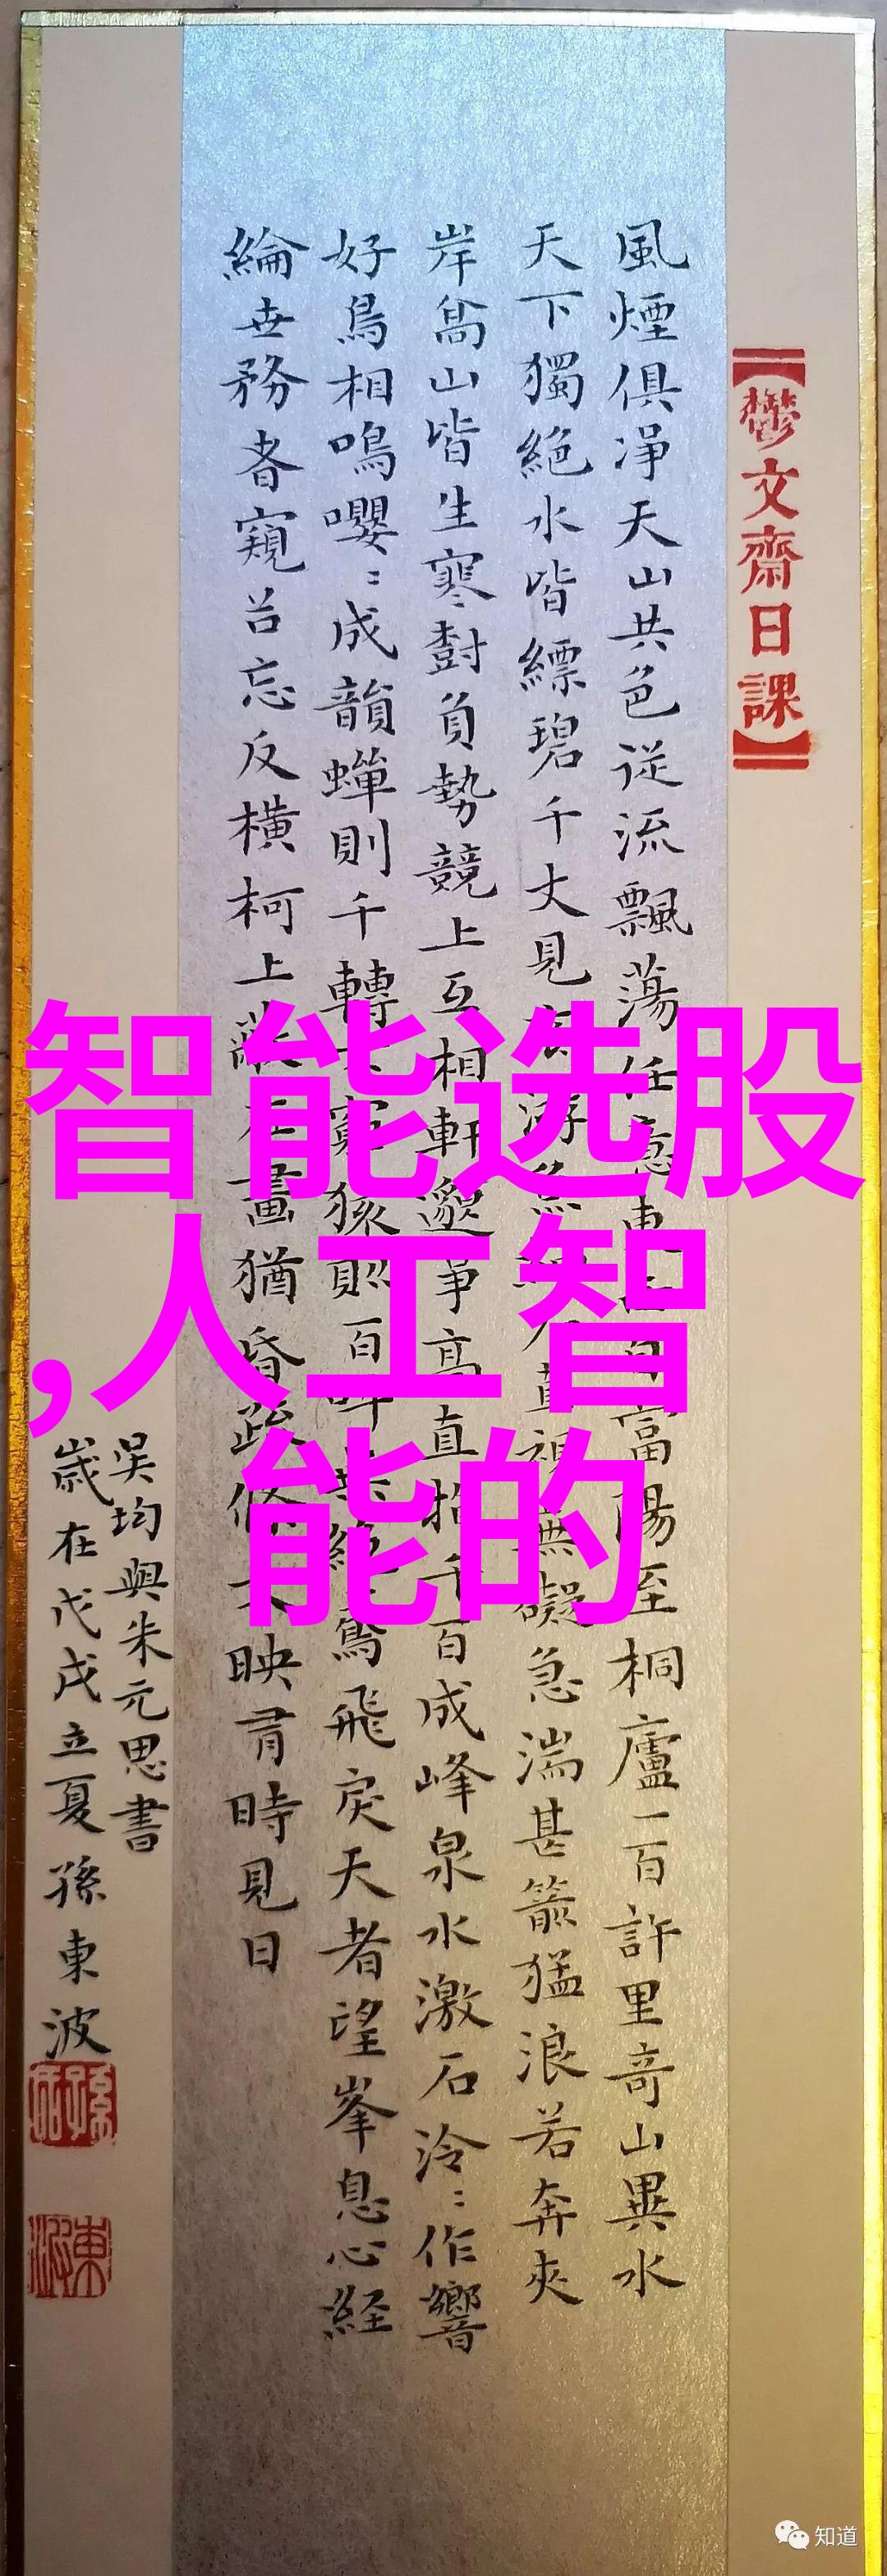 智能选股
,人工智
能的
【鬱文齋日課】
風煙俱淨天山共色從流飄蕩任意東富陽至桐廬一百許里奇山異水
天下獨絕水皆縹碧千丈見游魚直視無礙急湍甚箭猛浪若奔夾
岸高山皆生寒樹負勢競上互相軒邈爭高直指千百成峰泉水激石泠〻作響
好鳥相鳴嚶〻成韻蟬則千轉窮猿則百叫絕鳶飛戾天者望峯息心経
綸世務者窺谷忘反橫柯上蔽在晝猶昏疏條映有時見日
吳均與朱元思書
歲在戊戌立夏孫東波
知道